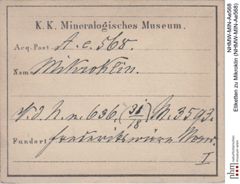 K. K. Mineralogisches Museum.
Acq. Post. A. e. 568.
Nom. Mikroklin.
N. d. K. n. 636. (38/18) M. 3593.
Fundort frederiksvärn Norw.
I.
NHMW-MIN-Ae568
Etiketten zu Mikroklin (NHMW-MIN-Ae568)
nhm